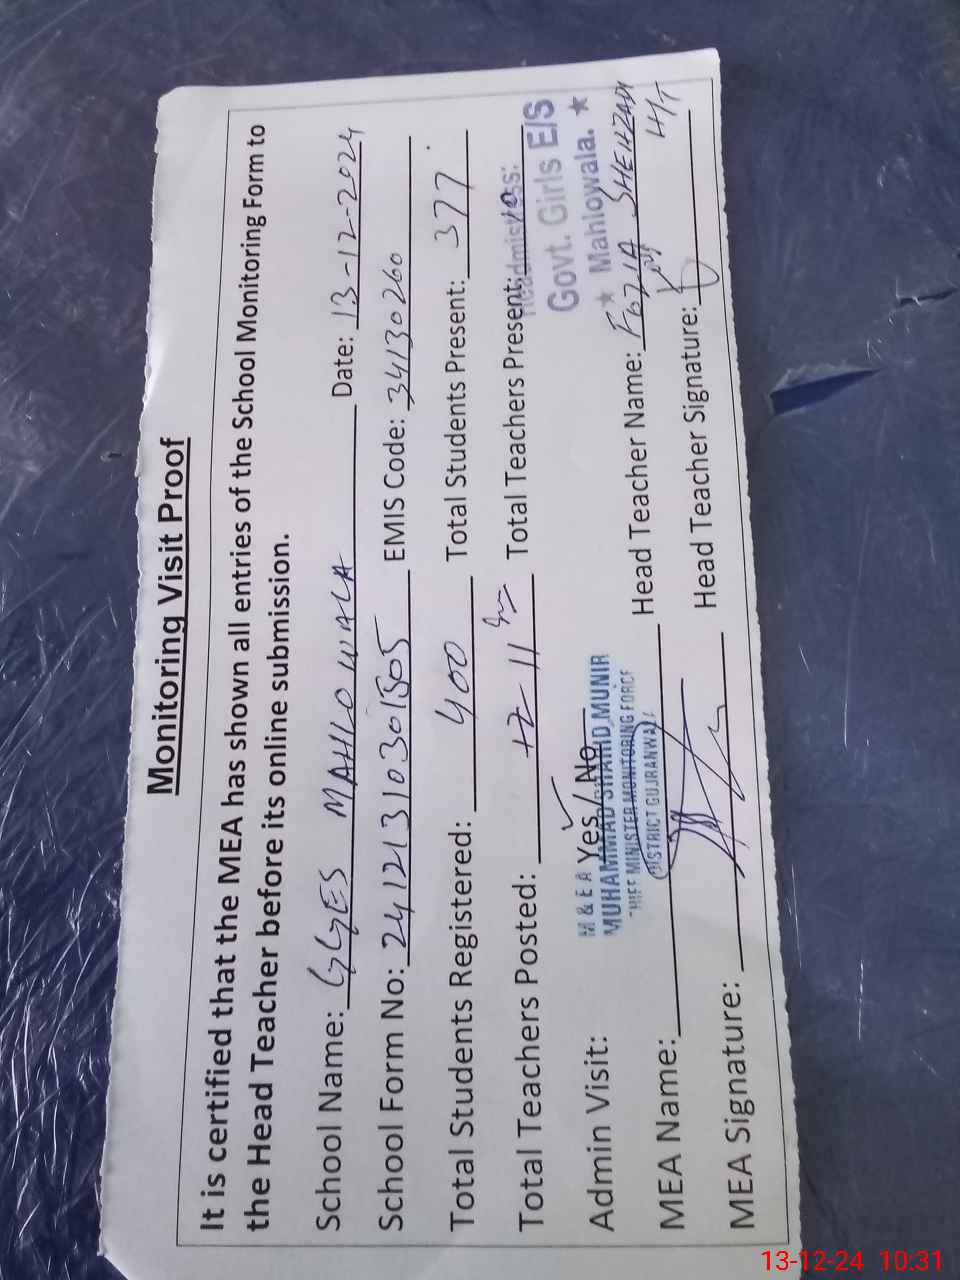 Monitoring Visit Proof
It is certified that the MEA has shown all entries of the School Monitoring Form to
the Head Teacher before its online submission.
School Name: GGES MAHLO WALA Date: 13-12-2024
School Form No: 24121310301505 EMIS Code: 34130260
Total Students Registered: 400 Total Students Present: 377
Total Teachers Posted: 11 Total Teachers Present: 10
Headmistress:
Govt. Girls E/S
★ Mahlowala. ★
Admin Visit: Yes / No
M & E A
MUHAMMAD SHAHID MUNIR
CHIEF MINISTER MONITORING FORCE
DISTRICT GUJRANWALA
MEA Name: Head Teacher Name: FOZIA SHEHZADI
H/T
MEA Signature: Head Teacher Signature:
13-12-24 10:31